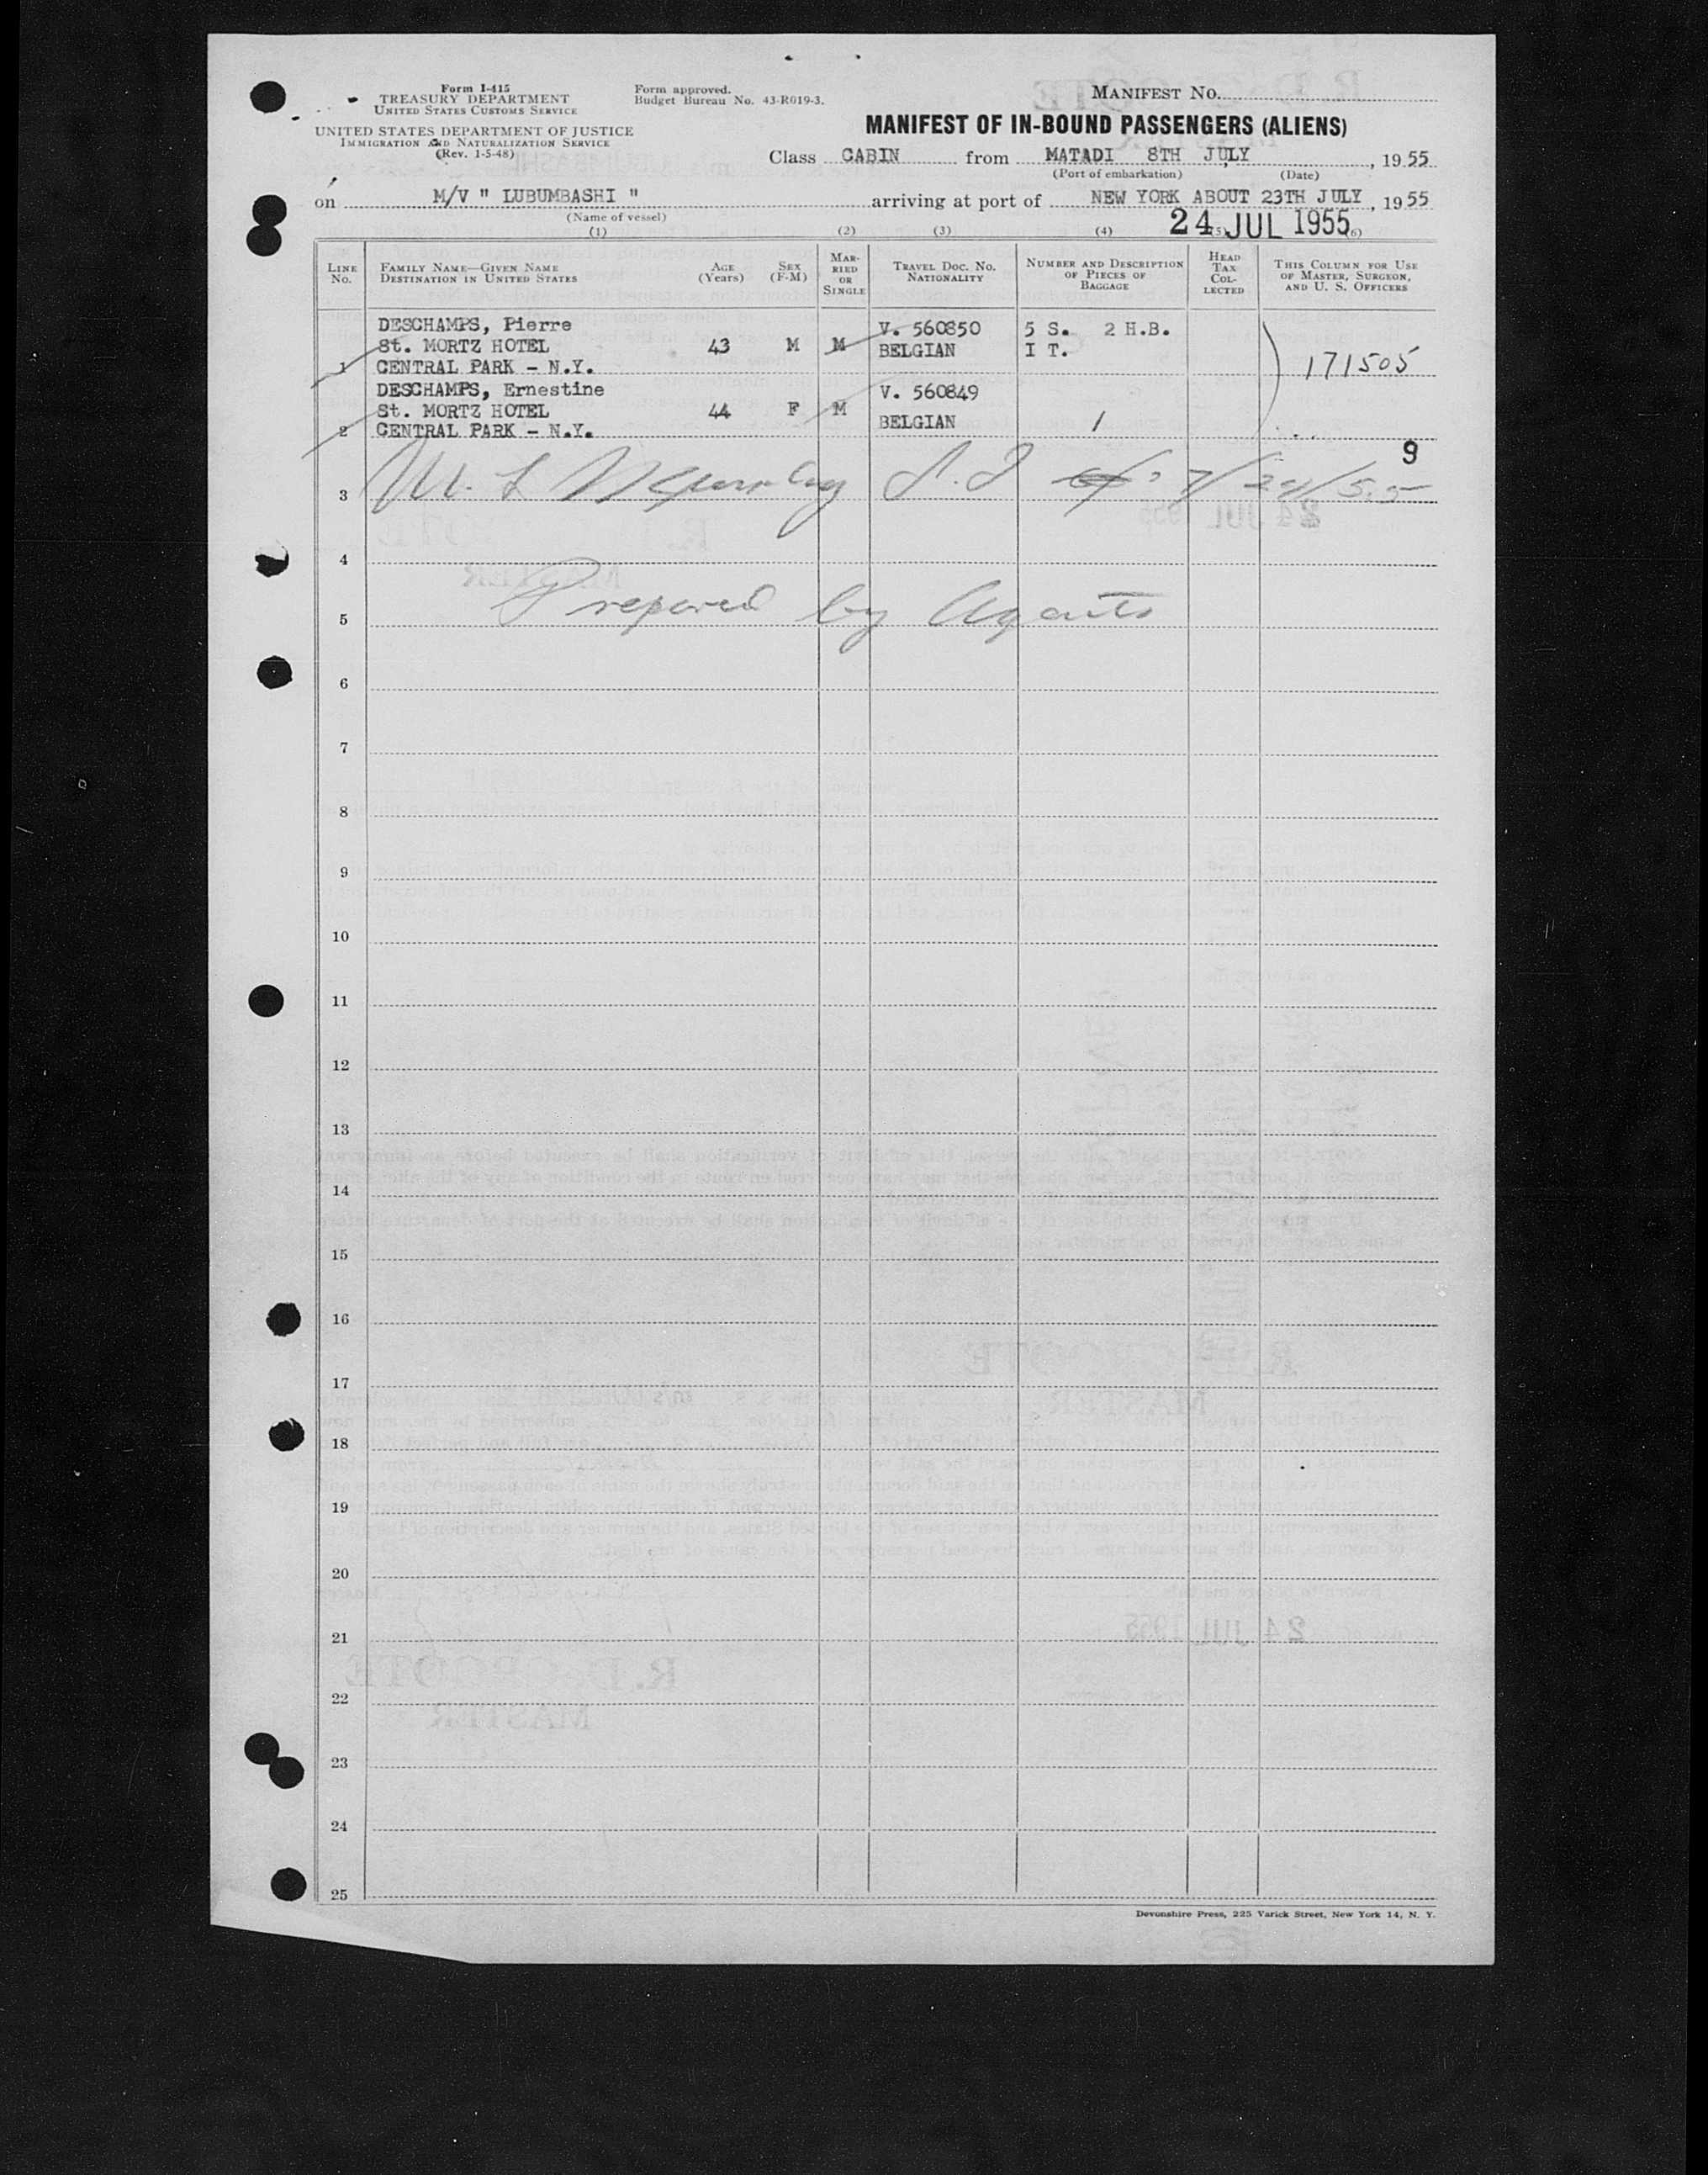 Form I-415
TREASURY DEPARTMENT
UNITED STATES CUSTOMS SERVICE
UNITED STATES DEPARTMENT OF JUSTICE
IMMIGRATION AND NATURALIZATION SERVICE
(Rev. 1-5-48)
Form approved.
Budget Bureau No. 43-R019-3.
MANIFEST NO.
MANIFEST OF IN-BOUND PASSENGERS (ALIENS)
Class CABIN from MATADI 8TH JULY, 1955
(Port of embarkation) (Date)
on M/V " LUBUMBASHI " arriving at port of NEW YORK ABOUT 23TH JULY, 1955
(Name of vessel)
24 JUL 1955
(1) (2) (3) (4) (5) (6)
LINE No. FAMILY NAME—GIVEN NAME DESTINATION IN UNITED STATES AGE (Years) SEX (F-M) MARRIED OR SINGLE TRAVEL DOC. NO. NATIONALITY NUMBER AND DESCRIPTION OF PIECES OF BAGGAGE HEAD TAX COLLECTED THIS COLUMN FOR USE OF MASTER, SURGEON, AND U. S. OFFICERS
DESCHAMPS, Pierre V. 560850 5 S. 2 H.B.
St. MORTZ HOTEL 43 M M BELGIAN I T.
1 CENTRAL PARK - N.Y. 171505
DESCHAMPS, Ernestine V. 560849
St. MORTZ HOTEL 44 F M
2 CENTRAL PARK - N.Y. BELGIAN /
9
3 7/24/55
4
Prepared by Agents
5
6
7
8
9
10
11
12
13
14
15
16
17
18
19
20
21
22
23
24
25
Devonshire Press, 225 Varick Street, New York 14, N. Y.